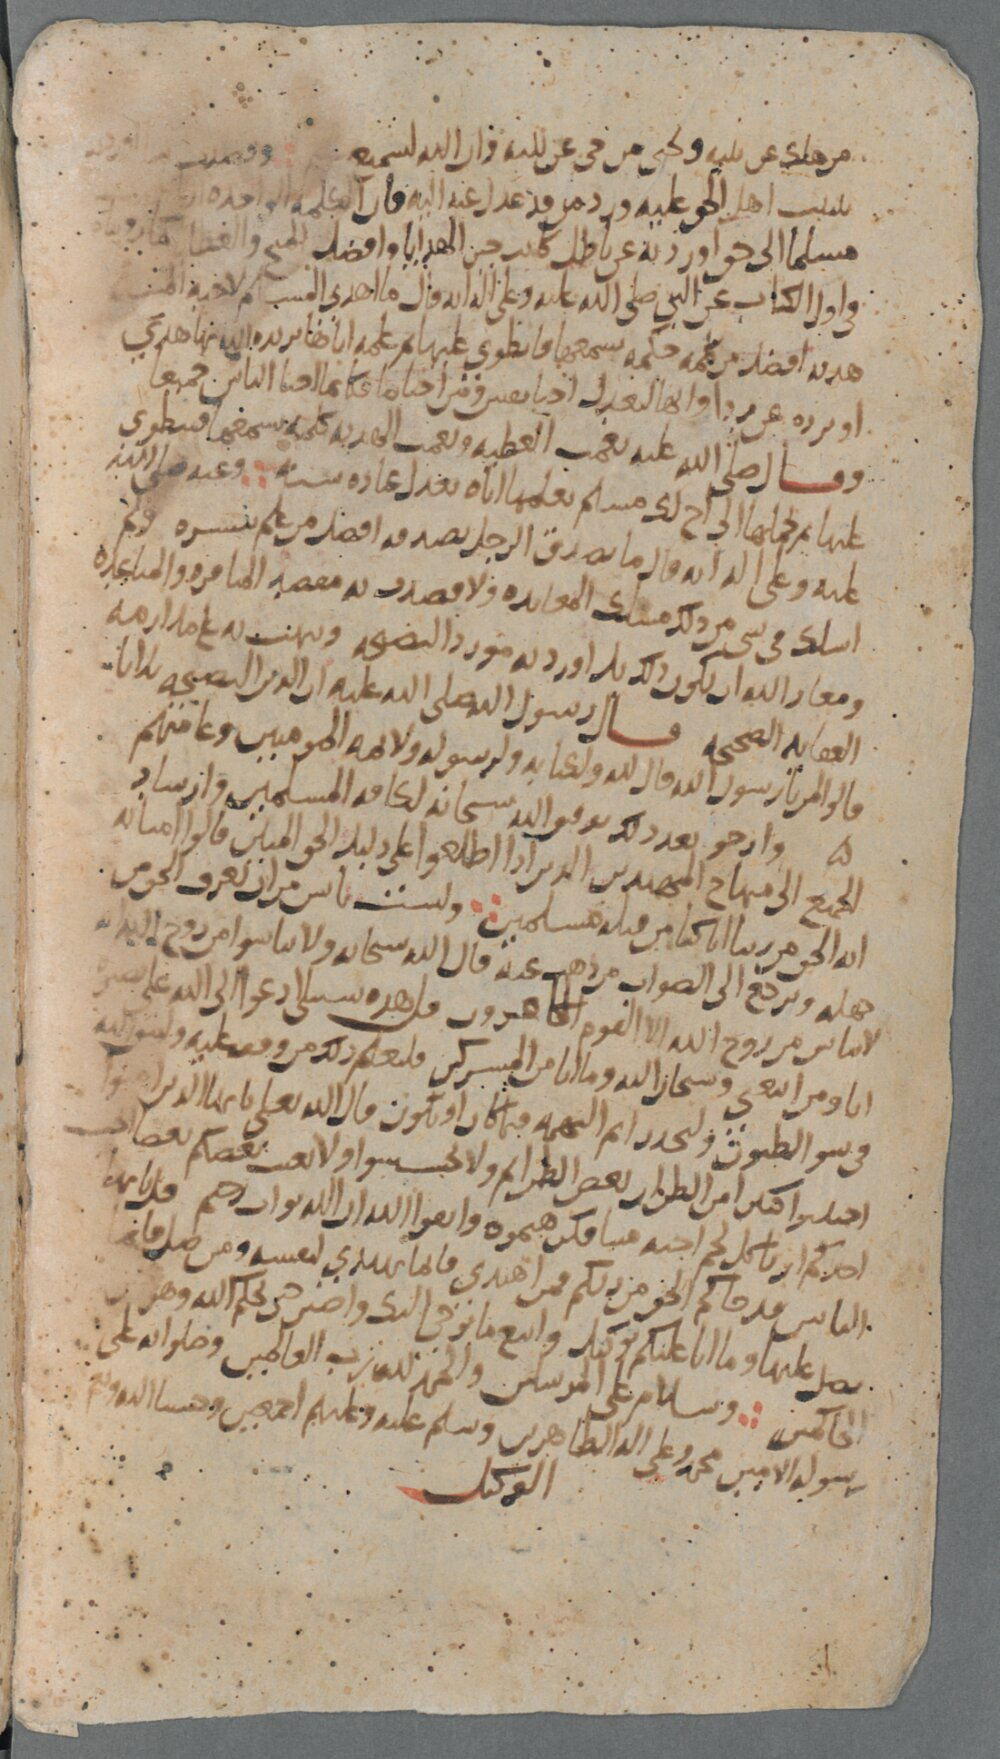 من هلك عن بينه ويحيى من حي عن بينه وان الله لسميع
تثبيت اهل الحق عليه ورد من قد عدل عنه اليه فان الكلمه الواحده
مسلما الى حق او ردته عن باطل كانت من الهدايا وافضل المنح والفضايل كما رويناه
في اول الكتاب عن النبي صلى الله عليه وعلى اله انه قال ما اهدى المسلم لاخيه المسلم
هديه افضل من كلمه حكمه يسمعها فانطوى عليها ثم علمه اياها يزيده الله بها هدى
او يرده عن ردا وانها لتعدل احيا نفس ومن احياها فكانما احيا الناس جميعا
وقال صلى الله عليه نعمت العطيه ونعمت الهديه كلمه تسمعها فتنطوي
عليها ثم تحملها الى اخ لك مسلم تعلمها اياه تعدل عباده سنه وعنه صلى الله
عليه وعلى اله انه قال ما تصدق الرجل بصدقه افضل من علم ينشره ولم
اسلك في شي من ذلك مسلك المعانده ولا قصدت به مقصد المنافره والمباعده
ومعاذ الله ان يكون ذلك بل اوردته مورد النصيحه ونبهت به على ما دارمه
العقايد الصحيحه قال رسول الله صلى الله عليه ان الدين النصيحه ثلاثا
قالوا لمن يا رسول الله قال لله ولكتابه ولرسوله ولائمه المومنين وعامتهم
وارجو بعد ذلك توفيق الله سبحانه لكافه المسلمين وارشاد
الجميع الى منهاج المهتدين الذين اذا اطلعوا على دليل الحق المبين قالوا امنا به
انه الحق من ربنا انا كنا من قبله مسلمين ولست بايس من ان يعرف الحق من
جهله ويرجع الى الصواب من ذهب عنه قال الله سبحانه ولا تياسوا من روح الله انه
لا يياس من روح الله الا القوم الكافرون قل هذه سبيلي ادعوا الى الله على بصيره
انا ومن اتبعني وسبحان الله وما انا من المشركين فليعلم ذلك من وقف عليه وليتق الله
في سو الظنون وليحذر اثم التهمه فيما كان او يكون قال الله تعالى يا ايها الذين امنوا
اجتنبوا كثيرا من الظن ان بعض الظن اثم ولا تجسسوا ولا يغتب بعضكم بعضا ايحب
احدكم ان ياكل لحم اخيه ميتا فكرهتموه واتقوا الله ان الله تواب رحيم قل يا ايها
الناس قد جاكم الحق من ربكم فمن اهتدى فانما يهتدي لنفسه ومن ضل فانما
يضل عليها وما انا عليكم بوكيل واتبع ما يوحى اليك واصبر حتى يحكم الله وهو خير
الحاكمين وسلام على المرسلين والحمد لله رب العالمين وصلواته على
رسوله الامين محمد وعلى اله الطاهرين وسلم عليه وعليهم اجمعين وحسبنا الله ونعم
الوكيل